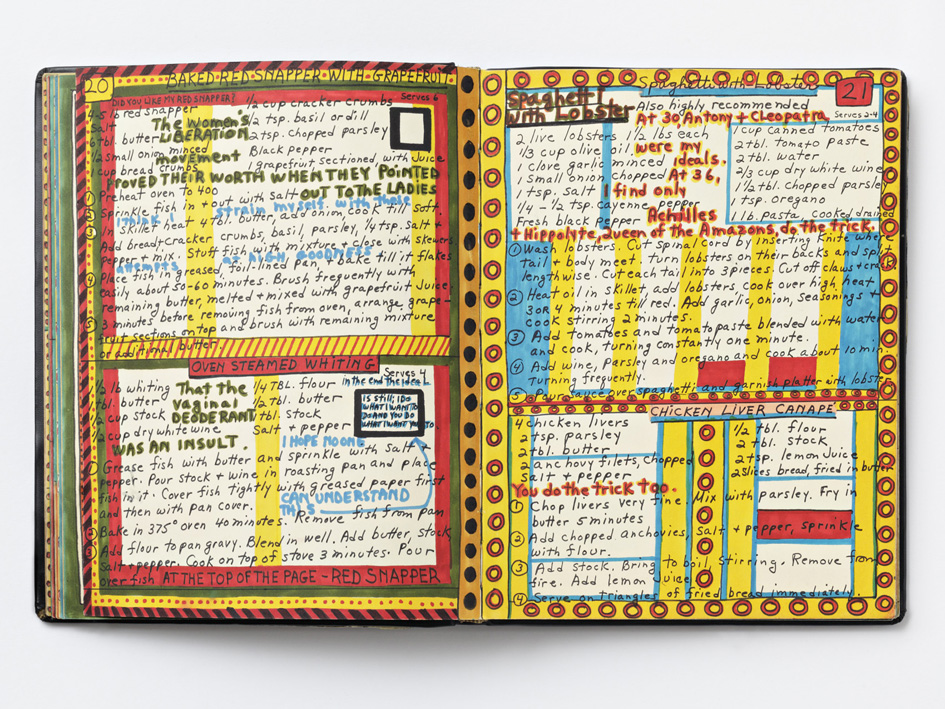 20
BAKED RED SNAPPER WITH GRAPEFRUIT
DID YOU LIKE MY RED SNAPPER?
Serves 6
4-5 lb red snapper
Salt
6 tbl. butter
1/2 small onion minced
1 cup bread crumbs
1/2 cup cracker crumbs
1/2 tsp. basil or dill
2 tsp. chopped parsley
Black pepper
1 grapefruit sectioned, with Juice
The Women's
LIBERATION
movement
PROVED THEIR WORTH WHEN THEY POINTED
OUT TO THE LADIES
① Preheat oven to 400
② Sprinkle fish in + out with Salt
I think I strain myself with these
③ In skillet heat 4 tbl. butter, add onion, cook till soft.
Add bread + cracker crumbs, basil, parsley, 1/4 tsp. salt +
Pepper + mix. Stuff fish with mixture + close with skewers
attempts at high GOODNESS
④ Place fish in greased, foil-lined pan + Bake till it flakes
easily about 50-60 minutes. Brush frequently with
remaining butter, melted + mixed with grapefruit Juice
⑤ 3 minutes before removing fish from oven, arrange grape-
fruit sections on top and brush with remaining mixture
or additional butter.
OVEN STEAMED WHITING
Serves 4
1/2 lb whiting
tbl. butter
2 cup stock
2 cup dry white wine
1/4 TBL. flour
1/2 tbl. butter
tbl. stock
Salt + pepper
That the
vaginal
DEODERANT
WAS AN INSULT.
in the end the ideal
IS STILL; I DO
WHAT I WANT TO
DO AND YOU DO
WHAT I WANT YOU TO
I HOPE NO ONE
CAN UNDERSTAND
THIS
① Grease fish with butter and sprinkle with Salt +
pepper. Pour Stock + wine in roasting pan and place
fish in it. Cover fish tightly with greased paper first
and then with pan cover.
② Bake in 375° oven 40 minutes. Remove fish from pan
③ Add flour to pan gravy. Blend in well. Add butter, stock,
Salt + pepper. Cook on top of stove 3 minutes. Pour
over fish
AT THE TOP OF THE PAGE - RED SNAPPER
21
Spaghetti with Lobster
Spaghetti
with Lobster
Also highly recommended
Serves 2-4
At 30, Antony + Cleopatra
were my
ideals.
At 36,
I find only
Achilles
+ Hippolyte, queen of the Amazons, do the trick.
2 live lobsters 1 1/2 lbs each
1/3 cup olive oil
1 clove garlic minced
1 Small onion chopped
1 tsp. salt
1/4 - 1/2 tsp. cayenne pepper
Fresh black pepper
1 cup canned tomatoes
2 tbl. tomato paste
2 tbl. water
2/3 cup dry white wine
1 1/2 tbl. chopped parsley
tsp. oregano
1 lb. pasta, cooked, drained
① Wash lobsters. Cut spinal cord by inserting knife where
tail + body meet. turn lobsters on their backs and split
lengthwise. Cut each tail into 3 pieces. Cut off claws + crack
② Heat oil in skillet, add lobsters, cook over high heat
3 or 4 minutes till red. Add garlic, onion, seasonings +
cook stirring 2 minutes.
③ Add tomatoes and tomato paste blended with water
and cook, turning constantly one minute.
④ Add wine, parsley and oregano and cook about 10 min.
Turning frequently.
⑤ Pour sauce over spaghetti and garnish platter with lobster
CHICKEN LIVER CANAPE
4 chicken livers
2 tsp. parsley
2 tbl. butter
2 anchovy filets, chopped
salt + pepper
1/2 tbl. flour
2 tbl. stock,
2 tsp. lemon Juice
2 Slices bread, fried in butter
You do the trick too.
① Chop livers very fine. Mix with parsley. Fry in
butter 5 minutes
② Add chopped anchovies, Salt + pepper, sprinkle
with flour.
③ Add stock. Bring to boil, stirring. Remove from
fire. Add lemon Juice
④ Serve on triangles of fried bread immediately.